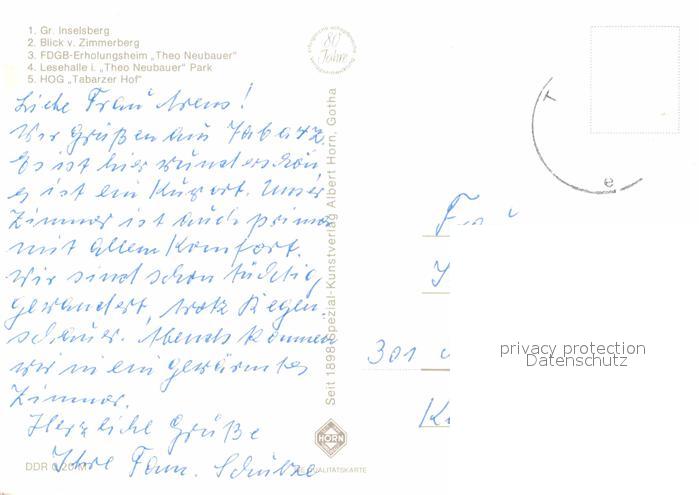 1. Gr. Inselsberg
2. Blick v. Zimmerberg
3. FDGB-Erholungsheim „Theo Neubauer"
4. Lesehalle i. „Theo Neubauer" Park
5. HOG „Tabarzer Hof"
80 Jahre
Liebe Frau Arens!
Wir Grüßen aus Tabarz.
Es ist hier wunderschön
es ist ein Kurort. Unser
Zimmer ist auch prima
mit allem Komfort.
Wir sind schon tüchtig
gewandert, trotz Regen-
schauer. Abends kommen
wir in ein gewärmtes
Zimmer.
Herzliche Grüße
Ihre Fam. Schulze
DDR 0,20 M
Seit 1898 Spezial-Kunstverlag Albert Horn, Gotha
HORN
QUALITÄTSKARTE
Frau
301
privacy protection
Datenschutz